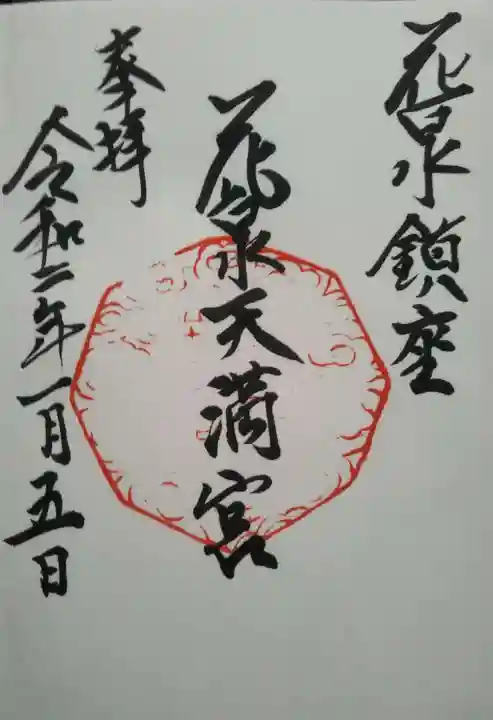 花泉鎮座
花泉天満宮
奉拝
令和二年一月五日